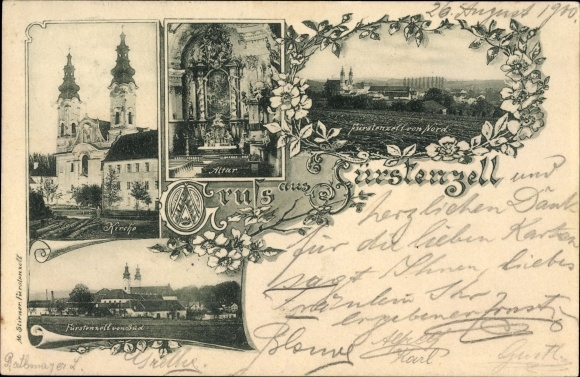 26. August 1900
Fürstenzell von Nord.
Altar.
Kirche
Gruß aus Fürstenzell
und
herzlichen Dank
für die lieben Karten
sagt Ihnen, liebes
Fräulein Ihr
ergebener
Fürstenzell von Süd
M. Stirner, Fürstenzell
Karl
Gustl